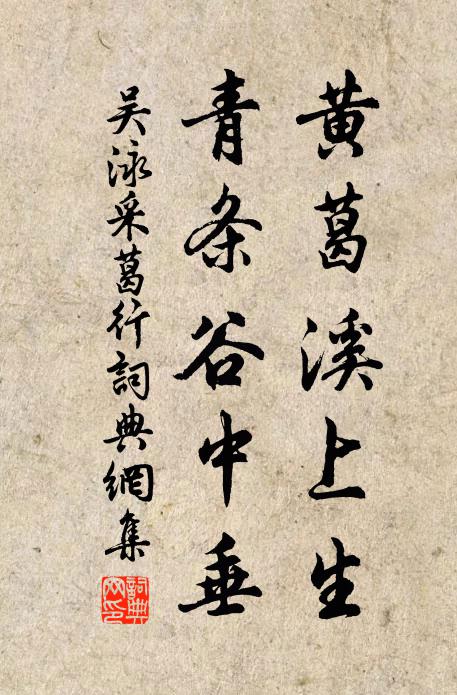 黄葛溪上生
青条谷中垂
吴泳采葛行詞典網集
詞典網印